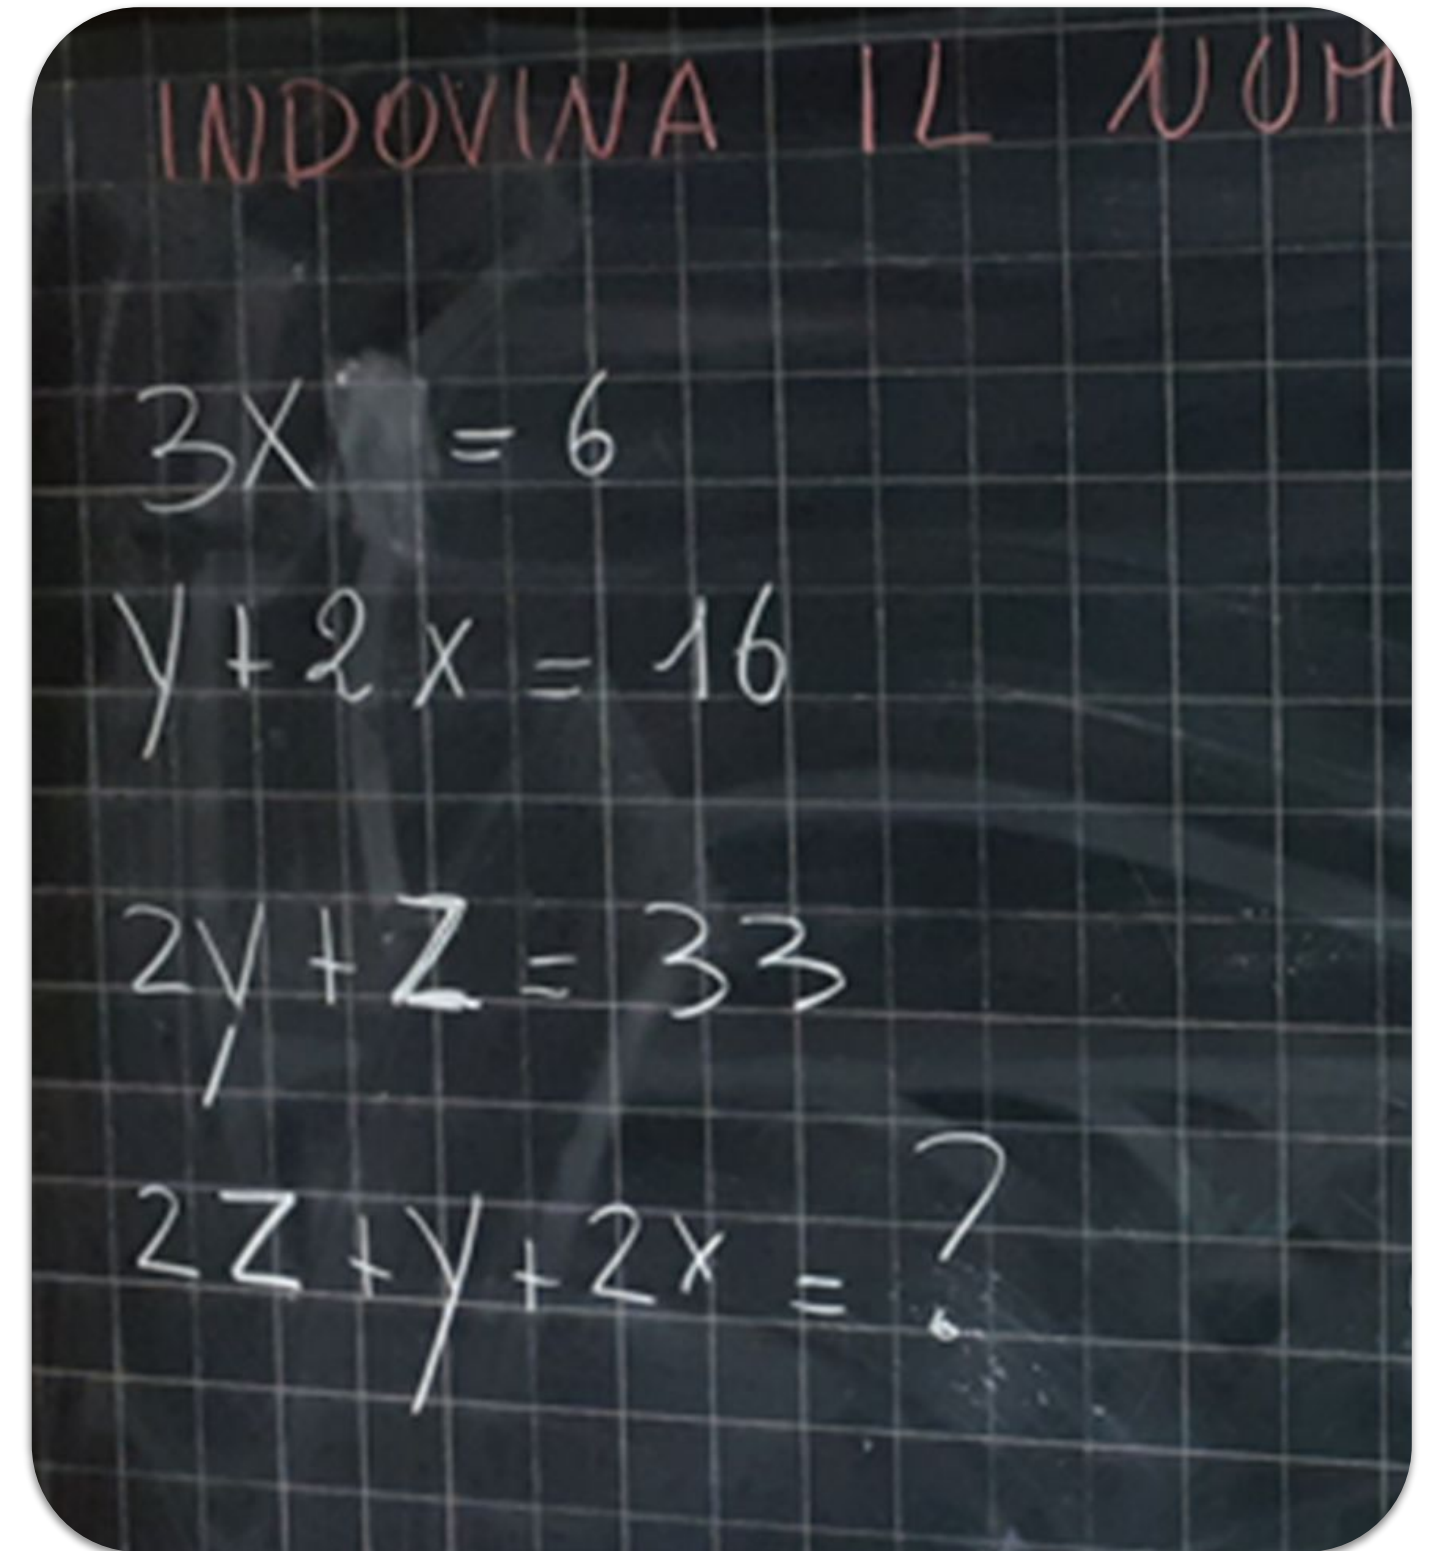 INDOVINA IL NUM
3X = 6
y + 2x = 16
2y + Z = 33
2Z + y + 2x = ?